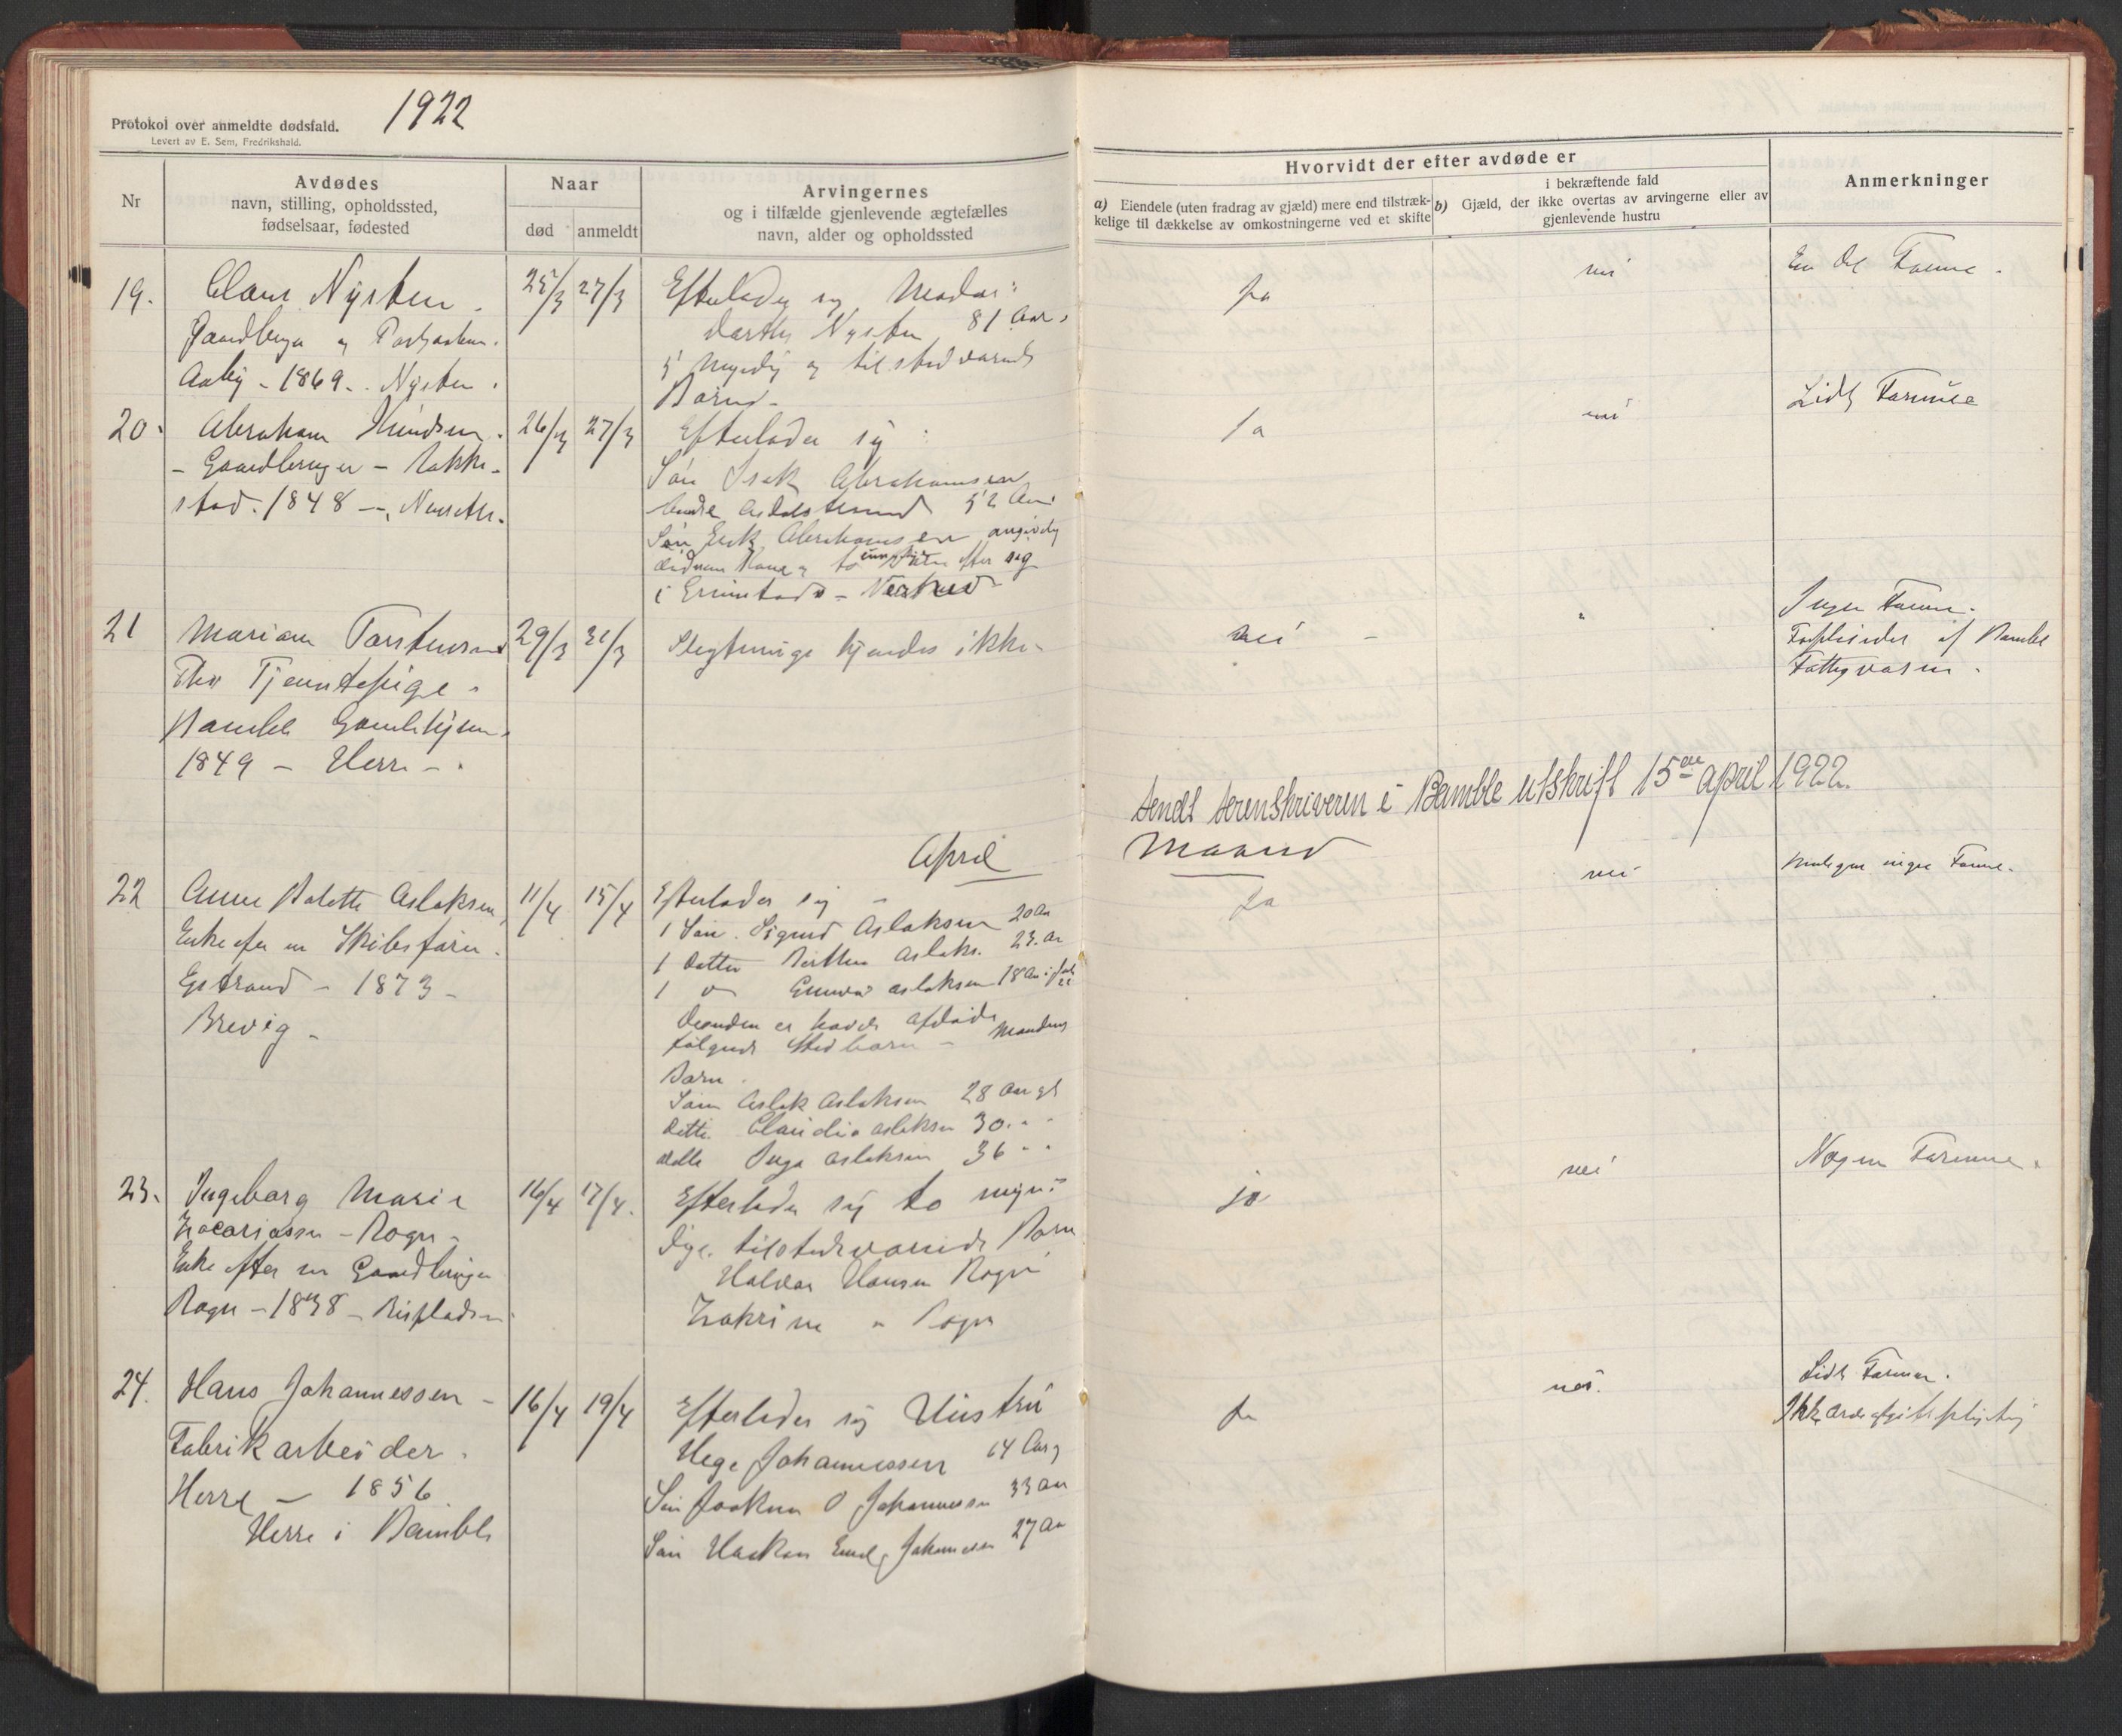 Protokol over anmeldte dødsfald.
Levert av E. Sem, Fredrikshald.
1922
Nr
Avdødes
navn, stilling, opholdssted,
fødselsaar, fødested
Naar
død
anmeldt
Arvingernes
og i tilfælde gjenlevende ægtefælles
navn, alder og opholdssted
Hvorvidt der efter avdøde er
a) Eiendele (uten fradrag av gjæld) mere end tilstræk-
kelige til dækkelse av omkostningerne ved et skifte
i bekræftende fald
b) Gjæld, der ikke overtas av arvingerne eller av
gjenlevende hustru
Anmerkninger
19.
Claus Nysten
Gaardbruger og
Aaby - 1869 - Nysten.
25/3 27/3
Efterlader sig Moder:
Nysten 81 Aar
5 Myndig og tilstedværende
Børn -
ja
nei
En Del Formue.
20.
Abraham Knudsen.
- Gaardbruger - Rakke-
stad. 1848 -
26/3 27/3
Efterlader sig:
Søn Isak Abrahamsen
52 Aar
Søn Erik Abrahamsen angivelig
død Kone og to Børn efter sig
i Grimstad -
ja
nei
Lidt Formue
21
Mariam Torstensen
Fhv Tjenestepige -
Bamble Gamlehjem.
1849 - Herre -
29/3 31/3
Slegtninge kjendes ikke -
nei -
Ingen Formue.
Forpleiedes af Bamble
Fattigvæsen.
Sendt Sorenskriveren i Bamble utskrift 15de april 1922.
April
Maaned
22
Anne Bolette Aslaksen
Enke efter en Skibsfører.
Eستrand - 1873 -
Brevig -
11/4 15/4
Efterlader sig -
1 Søn. Sigurd Aslaksen 20 Aar
1 Datter Berthea Aslaks. 23. Ar
1 Do Gunvor Aslaksen 18 Aar i
Desuden er havde afdøde
følgende Stedbørn - Mandens
Børn.
Søn Aslak Aslaksen 28 Aar gl
Datter Claudia Aslaksen 30 " "
Datter Inga Aslaksen 36 " "
ja
nei
ingen Formue.
23.
Ingeborg Marie
Zacariassen - Rogn -
Enke efter en Gaardbruger
Rogn - 1838 - Risplads
16/4 17/4.
Efterlader sig to myn-
dige tilstedeværende Børn
Halvor Hansen Rogn
Zakrine " Rogn
ja
nei
Nogen Formue.
24.
Hans Johannessen -
Fabrikarbeider.
Herre - 1856
Herre i Bamble
16/4 19/4
Efterlader sig Hustru
Hege Johannessen 64 Aar
Søn Joakum O Johannessen 33 Aar
Søn Haakon Emil Johannessen 27 Aar
ja
nei.
Lidt Formue.
Ikke Arveafgiftspligtig